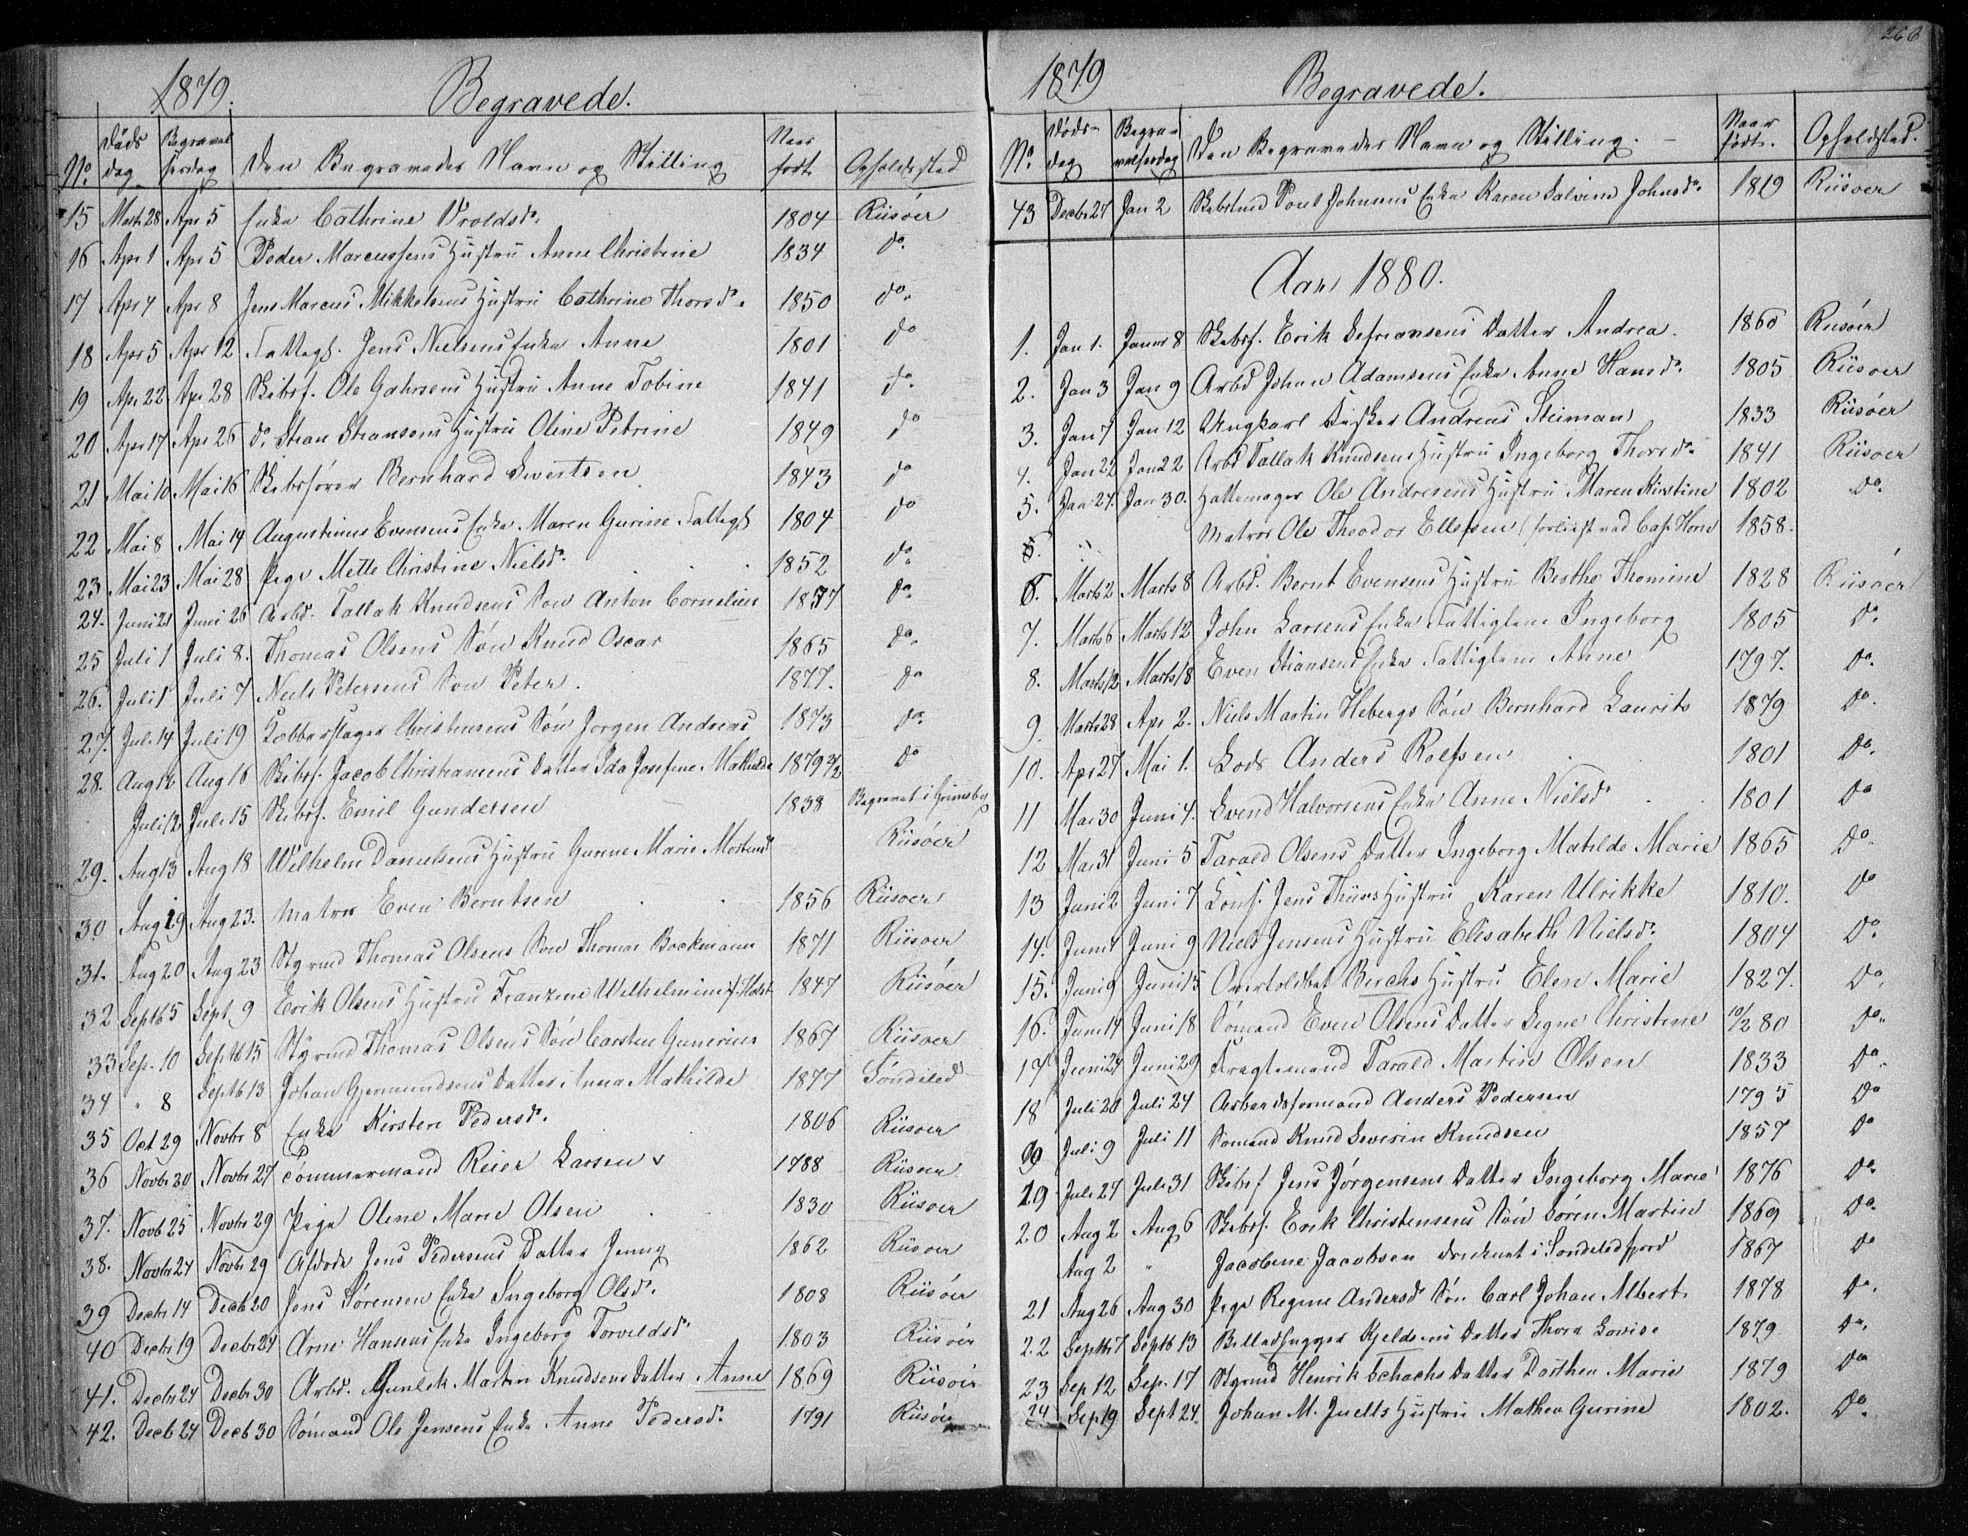 1879. Begravede.
No. Døds dag Begravelsesdag Den Begravedes Navn og Stilling Naar født Opholdssted
15 Marts 28 Apr 5 Enke Cathrine Vroldsdr. 1804 Riisøer
16 Apr 1 Apr 5 Peder Marcussens Hustru Anne Christine 1834 do.
17 Apr 4 Apr 8 Jens Marcus Mikkelsens Hustru Cathrine Thorsdr. 1850 do.
18 Apr 5 Apr 12 Fattigl. Jens Nielsens Enke Anne 1801 do
19 Apr 22 Apr 28 Skibsf. Ole Hustru Anne Tobine 1841 do.
20 Apr 17 Apr 26 do. Stian Stiansens Hustru Oline Petrine 1849 do
21 Mai 10 Mai 16 Skibsfører Bernhard Evertsen 1843 do
22 Mai 8 Mai 14 Augustinus Evensens Enke Maren Gurine Fattigl 1804 do
23 Mai 23 Mai 28 Pige Mette Christine Nielsdr. 1852 do.
24. Juni 21 Juni 26 Arbd. Tallak Knudsens Søn Anton Cornelius 1857 do.
25 Juli 1 Juli 8. Thomas Olsens Søn Knud Oscar 1865 do.
26. Juli 1 Juli 7 Niels Petersens Søn Peter. 1877. do
27. Juli 14 Juli 19 Kobberslager Christensens Søn Jørgen Andreas 1873 do.
28. Aug 12 Aug 16 Skibsf. Jacob Christiansens Datter Ida Josefine Mathilde 1879 do
Juli 12 Juli 15 Skibsf. Emil Gundersen 1838 Begravet i Grimsby
29. Aug 13 Aug 18 Wilhelm Danielsens Hustru Gunne Marie Mortensd Riisøer
30 Aug 19 Aug 23. Matros Even Berntsen 1856 Riisøer
31. Aug 20 Aug 23 Styrmd Thomas Olsens Søn Thomas Bockmann 1871 Riisøer
32 Septb 5 Sept 9 Erik Olsens Hustru Franzine Wilhelmine f. Holst 1847 Riisøer
33 Sep. 10 Septb 15 Styrmd Thomas Olsens Søn Carsten Gunerius 1867 Riisøer
34 " 8 Septb 13 Johan Gjermundsens Datter Anna Mathilde 1877 Søndeled
35 Oct 29 Novbr 8 Enke Kirsten Pedersdr. 1806 Riisøer
36 Novbr 20 Novbr 27 Tømmermand Reier Larsen 1788 Riisøer
37. Novb 25 Novbr 29 Pige Oline Marie Olsen 1830 Riisøer
38. Novbr 24 Novbr 29 Afdøde Jens Pedersens Datter Jenny 1862 Riisøer
39 Decbr 14 Decb 20 Jens Sørensen Enke Ingeborg Olsdr. 1808 Riisøer
40 Decbr 19 Decbr 24 Arne Hansens Enke Ingeborg Torvildsdr 1803 Riisøer
41. Decbr 24 Decbr 30 Arbd. Gunlek Martin Knudsens Datter Anne 1869 Riisøer
42. Decb 24 Decb 30 Sømand Ole Jensens Enke Anne Pedersdr. 1791 Riisøer
266
1879 Begravede.
No. Dødsdag Begravelsesdag Den Begravedes Navn og Stilling. Naar født. Opholdsted.
43 Decbr 27 Jan 2 Skibstmd Poul Johnsens Enke Karen Salvine Johnsdr. 1819 Riisøer
Aar 1880.
1. Jan 1. Januar 8 Skibsf. Erik Datter Andrea. 1860 Riisøer
2. Jan 3 Jan 9 Arbd Johan Adamsens Enke Anne Hansdr. 1805 Riisøer
3. Jan 7 Jan 12 Ungkarl Fisker Andreas Steiman 1833 Riisøer
4. Jan 22 Jan 22 Arbd Tallak Knudsens Hustru Ingeborg Thorsdr. 1841 Riisøer
5. Jan 24. Jan 30. Hattemager Ole Andresens Hustru Maren Kirstine 1802 Do.
6. " Matros Ole Theodor Ellefsen (forliist ved Cap Horn 1858.
6. Marts 2 Marts 8 Arbd. Bernt Evensens Hustru Berthe Thomine 1828 Riisøer
7. Marts 6 Marts 12 John Larsens Enke Fattiglem Ingeborg 1805 Do.
8. Marts 12 Marts 18 Even Stiansens Enke Fattiglem Anne 1797. Do.
9. Marts 28 Apr 2. Niels Martin Hebergs Søn Bernhard Laurits 1879 Do.
10. Apr 27 Mai 1. Lods Anders Rolfsen 1801 Do.
11 Mai 30 Juni 4. Svend Halvorsens Enke Anne Nielsdr 1801 Do
12 Mai 31 Juni 5 Tarald Olsens Datter Ingeborg Matilde Marie 1865 Do.
13 Juni 2 Juni 7 Cons. Jens Thiis Hustru Karen Ulrikke 1810. Do
14. Juni 4 Juni 9 Niels Jensens Hustru Elisabeth Nielsdr. 1804 Do.
15. Juni 9 Juni 15 Overtoldbet Berchs Hustru Elen Marie 1827. Do.
16. Juni 14 Juni 18 Sømand Even Olsens Datter Signe Christine 10/2 80 Do.
17 Juni 24 Juni 29 Fragtemand Tarald Martin Olsen 1833 Do.
18 Juli 20 Juli 24 Arbeidsformand Anders Pedersen 1795 Do
19 Juli 9 Juli 11 Sømand Knud Severin Knudsen 1857 Do
19 Juli 27 Juli 31 Skibsf Jens Jørgensens Datter Ingeborg Marie 1876 Do.
20 Aug 2 Aug 6 Skibsf. Erik Christensens Søn Søren Martin 1869 Do.
Aug 2 " Jacobine Jacobsen druknet i Søndeledfjord 1867 Do
21 Aug 26 Aug 30 Pige Regine Andersdr Søn Carl Johan Albert 1878 Do.
22 Septbr 7 Septb 13 Billedhugger Kjeldsens Datter Thora Lovise 1879 Do.
23 Sep 12 Sep. 17 Styrmd Henrik Schachs Datter Dorthea Marie 1879 Do
24 Sep 19 Sept 24. Johan M. Juells Hustru Mathea Gurine 1802. Do.